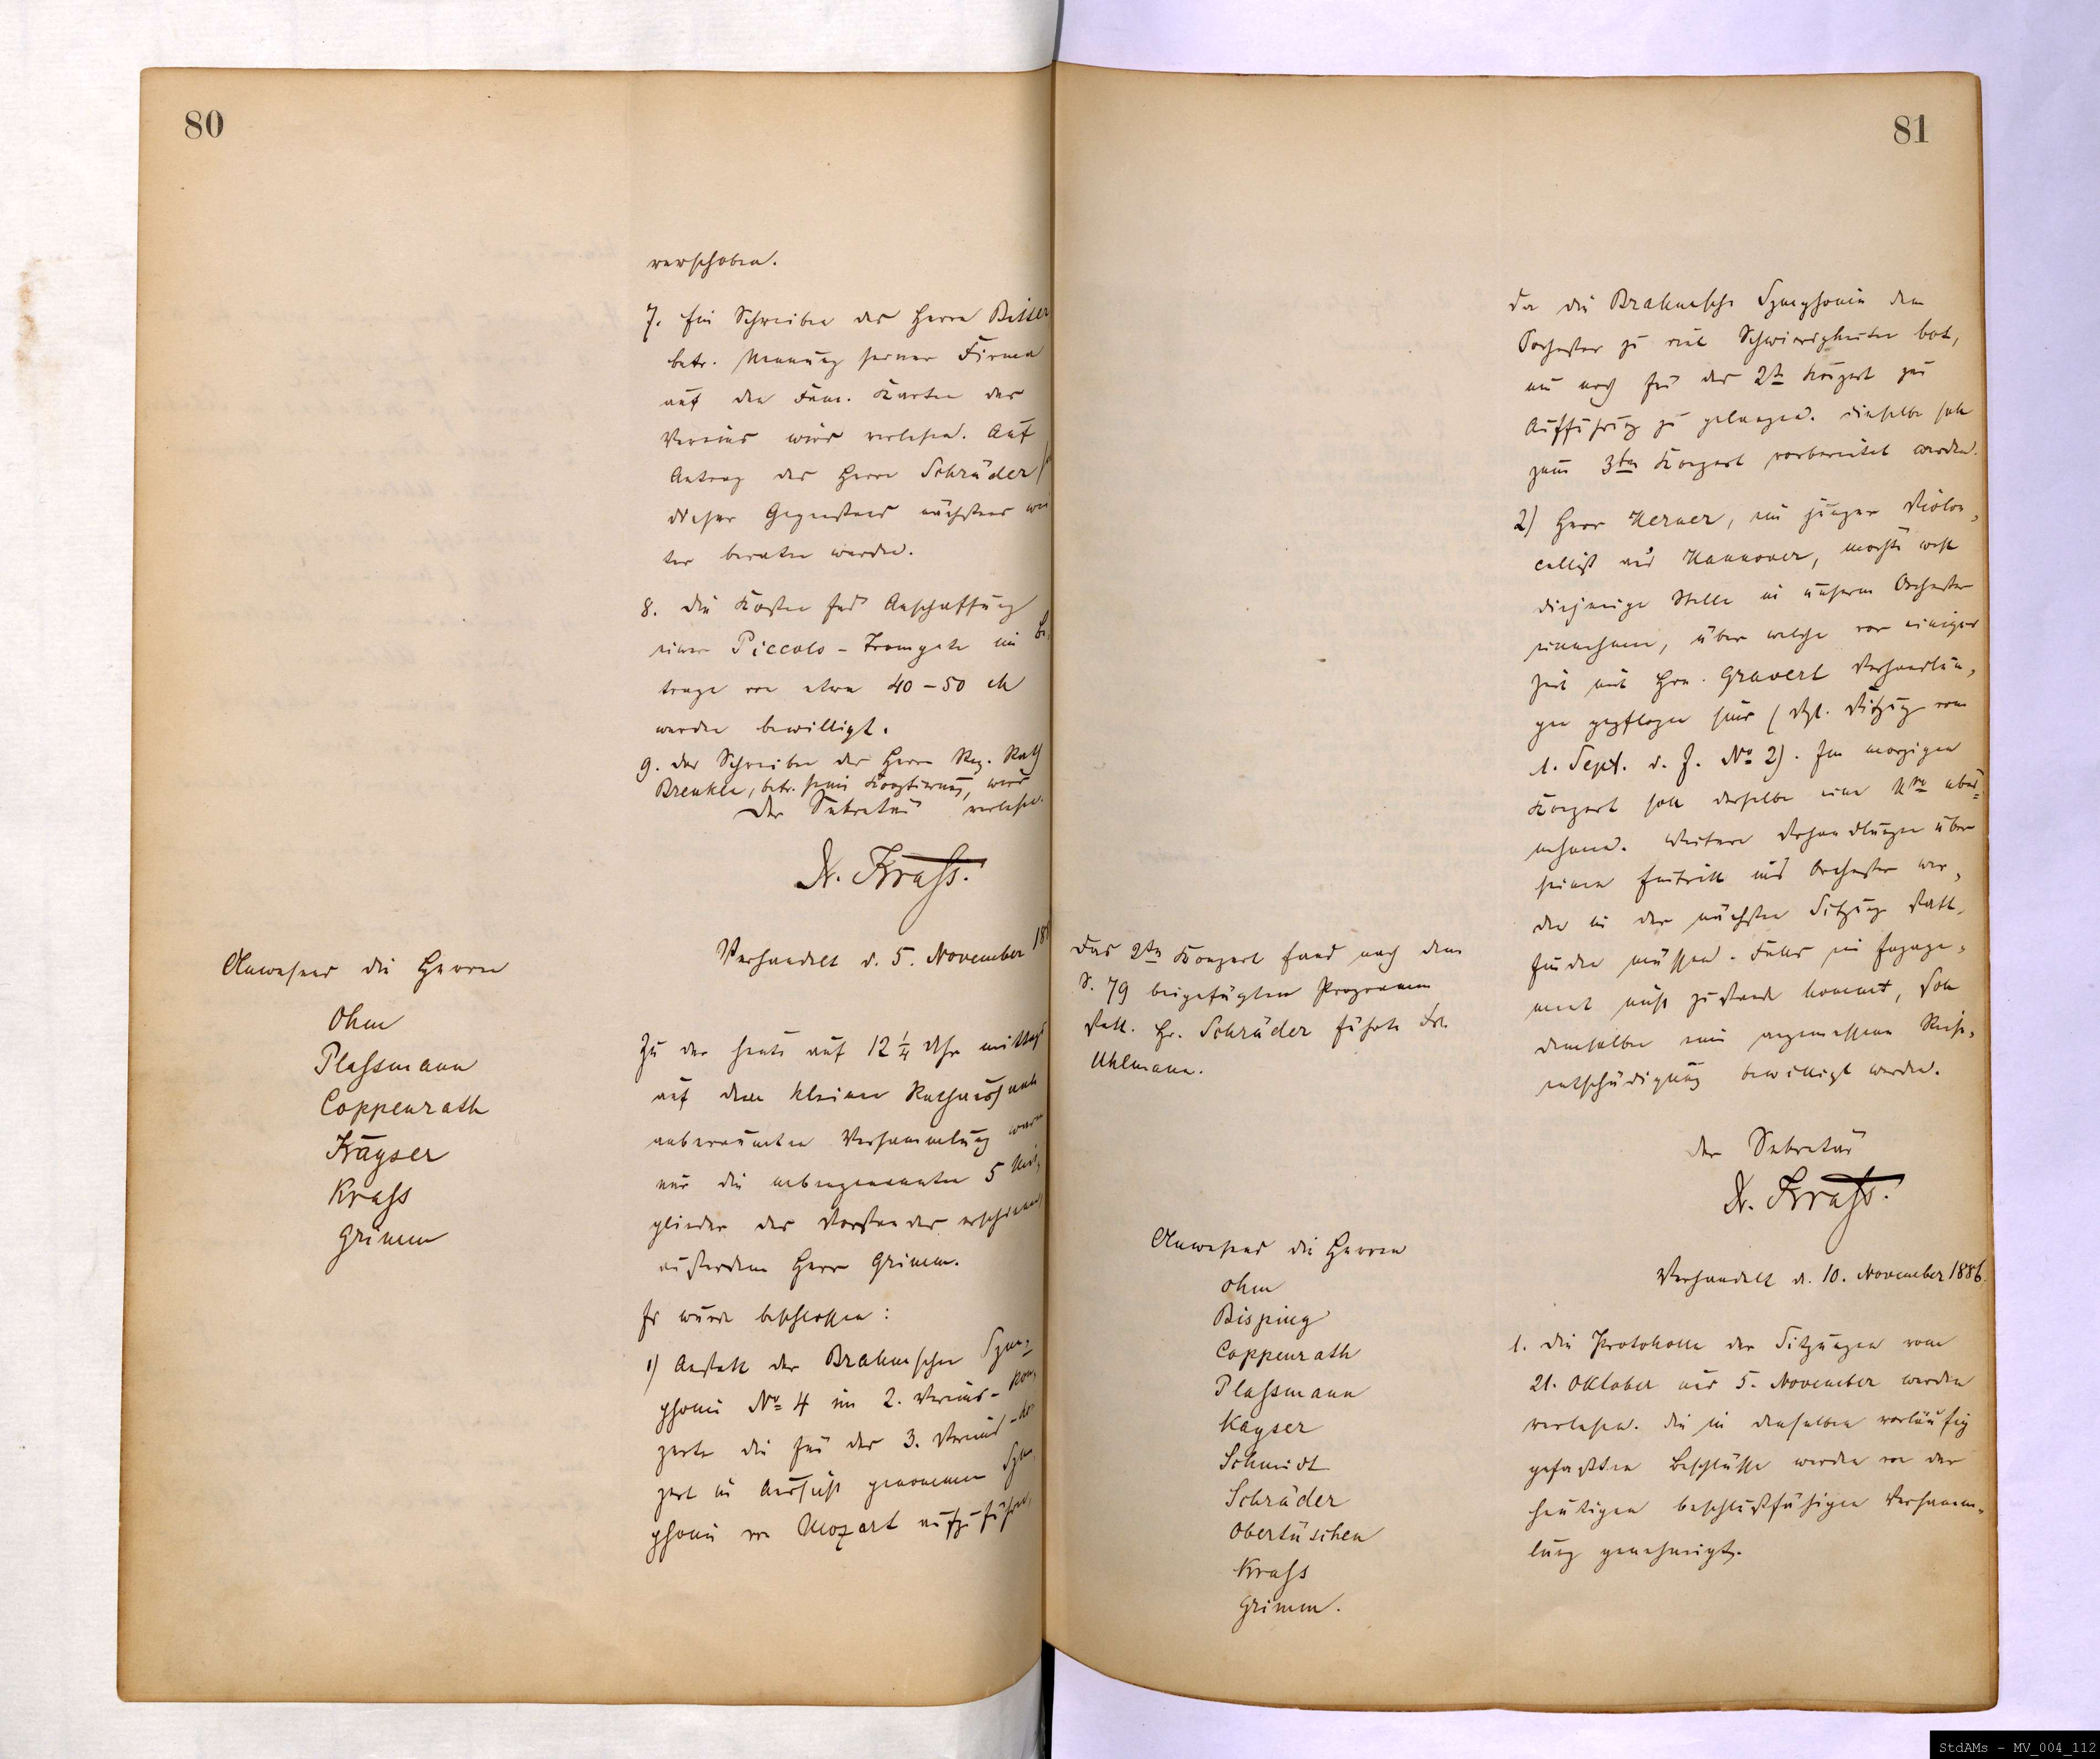 80
verschoben.
7. Ein Schreiben des Herrn Bisser
betr. Nennung seiner Firma
auf den Fam. Karten des
Vereins wird verlesen. Auf
Antrag des Herrn Schräder
dieser Gegenstand nächstens wei
ter beraten werden.
8. Die Kosten für Anschaffung
einer Piccolo-Trompete im Be,
trage von etwa 40-50 M
werden bewilligt.
9. Das Schreiben des Herrn Reg. Rath
Brenken, betr. seine Kooptierung, wird
verlesen.
Der Sekretär
Dr. Krass.
Verhandelt d. 5. November 188
Anwesend die Herren
Ohm
Plassmann
Coppenrath
Kayser
Krass
Grimm
Zu der heute auf 12 1/4 Uhr mittags
auf dem kleinen Rathaussaale
anberaumten Versammlung waren
nur die nebengenannten 5 Mit,
glieder des Vorstandes erschienen,
außerdem Herr Grimm.
Es wurde beschlossen:
1) Anstatt der Brahmsschen Sym,
phonie No 4 im 2. Vereins-Kon,
zerte die für das 3. Vereins-Kon
zert in Aussicht genommene Sym,
phonie von Mozart aufzuführen,
81
da die Brahmssche Symphonie dem
Orchester zu viel Schwierigkeiten bot,
um noch für das 2te Konzert zur
Aufführung zu gelangen. Dieselbe soll
zum 3ten Konzert vorbereitet werden.
2) Herr Herner, ein junger Violon,
cellist aus Hannover, möchte wohl
diejenige Stelle in unserm Orchester
einnehmen, über welche vor einiger
Zeit mit Hrn. Gravert Verhandlun,
gen gepflogen sind (Vgl. Sitzung vom
1. Sept. d. J. No 2). Im morgigen
Konzert soll derselbe eine Nro über=
nehmen. Weitere Verhandlungen über
seinen Eintritt ins Orchester wer,
den in der nächsten Sitzung statt,
finden müssen. Falls ein Engage,
ment nicht zustande kommt, soll
demselben eine angemessene Reise,
entschädigung bewilligt werden.
Das 2te Konzert fand nach dem
S. 79 beigefügten Programm
statt. Hr. Schräder führte Frl.
Uhlmann.
Der Sekretär
Dr. Krass.
Verhandelt d. 10. November 1886.
Anwesend die Herren
Ohm
Bisping
Coppenrath
Plassmann
Kayser
Schmidt
Schräder
Obertüschen
Krass
Grimm.
1. Die Protokolle der Sitzungen vom
21. Oktober und 5. November werden
verlesen. Die in denselben vorläufig
gefaßten Beschlüsse werden von der
heutigen beschlußfähigen Versamm,
lung genehmigt.
StdAMs - MV_004_112